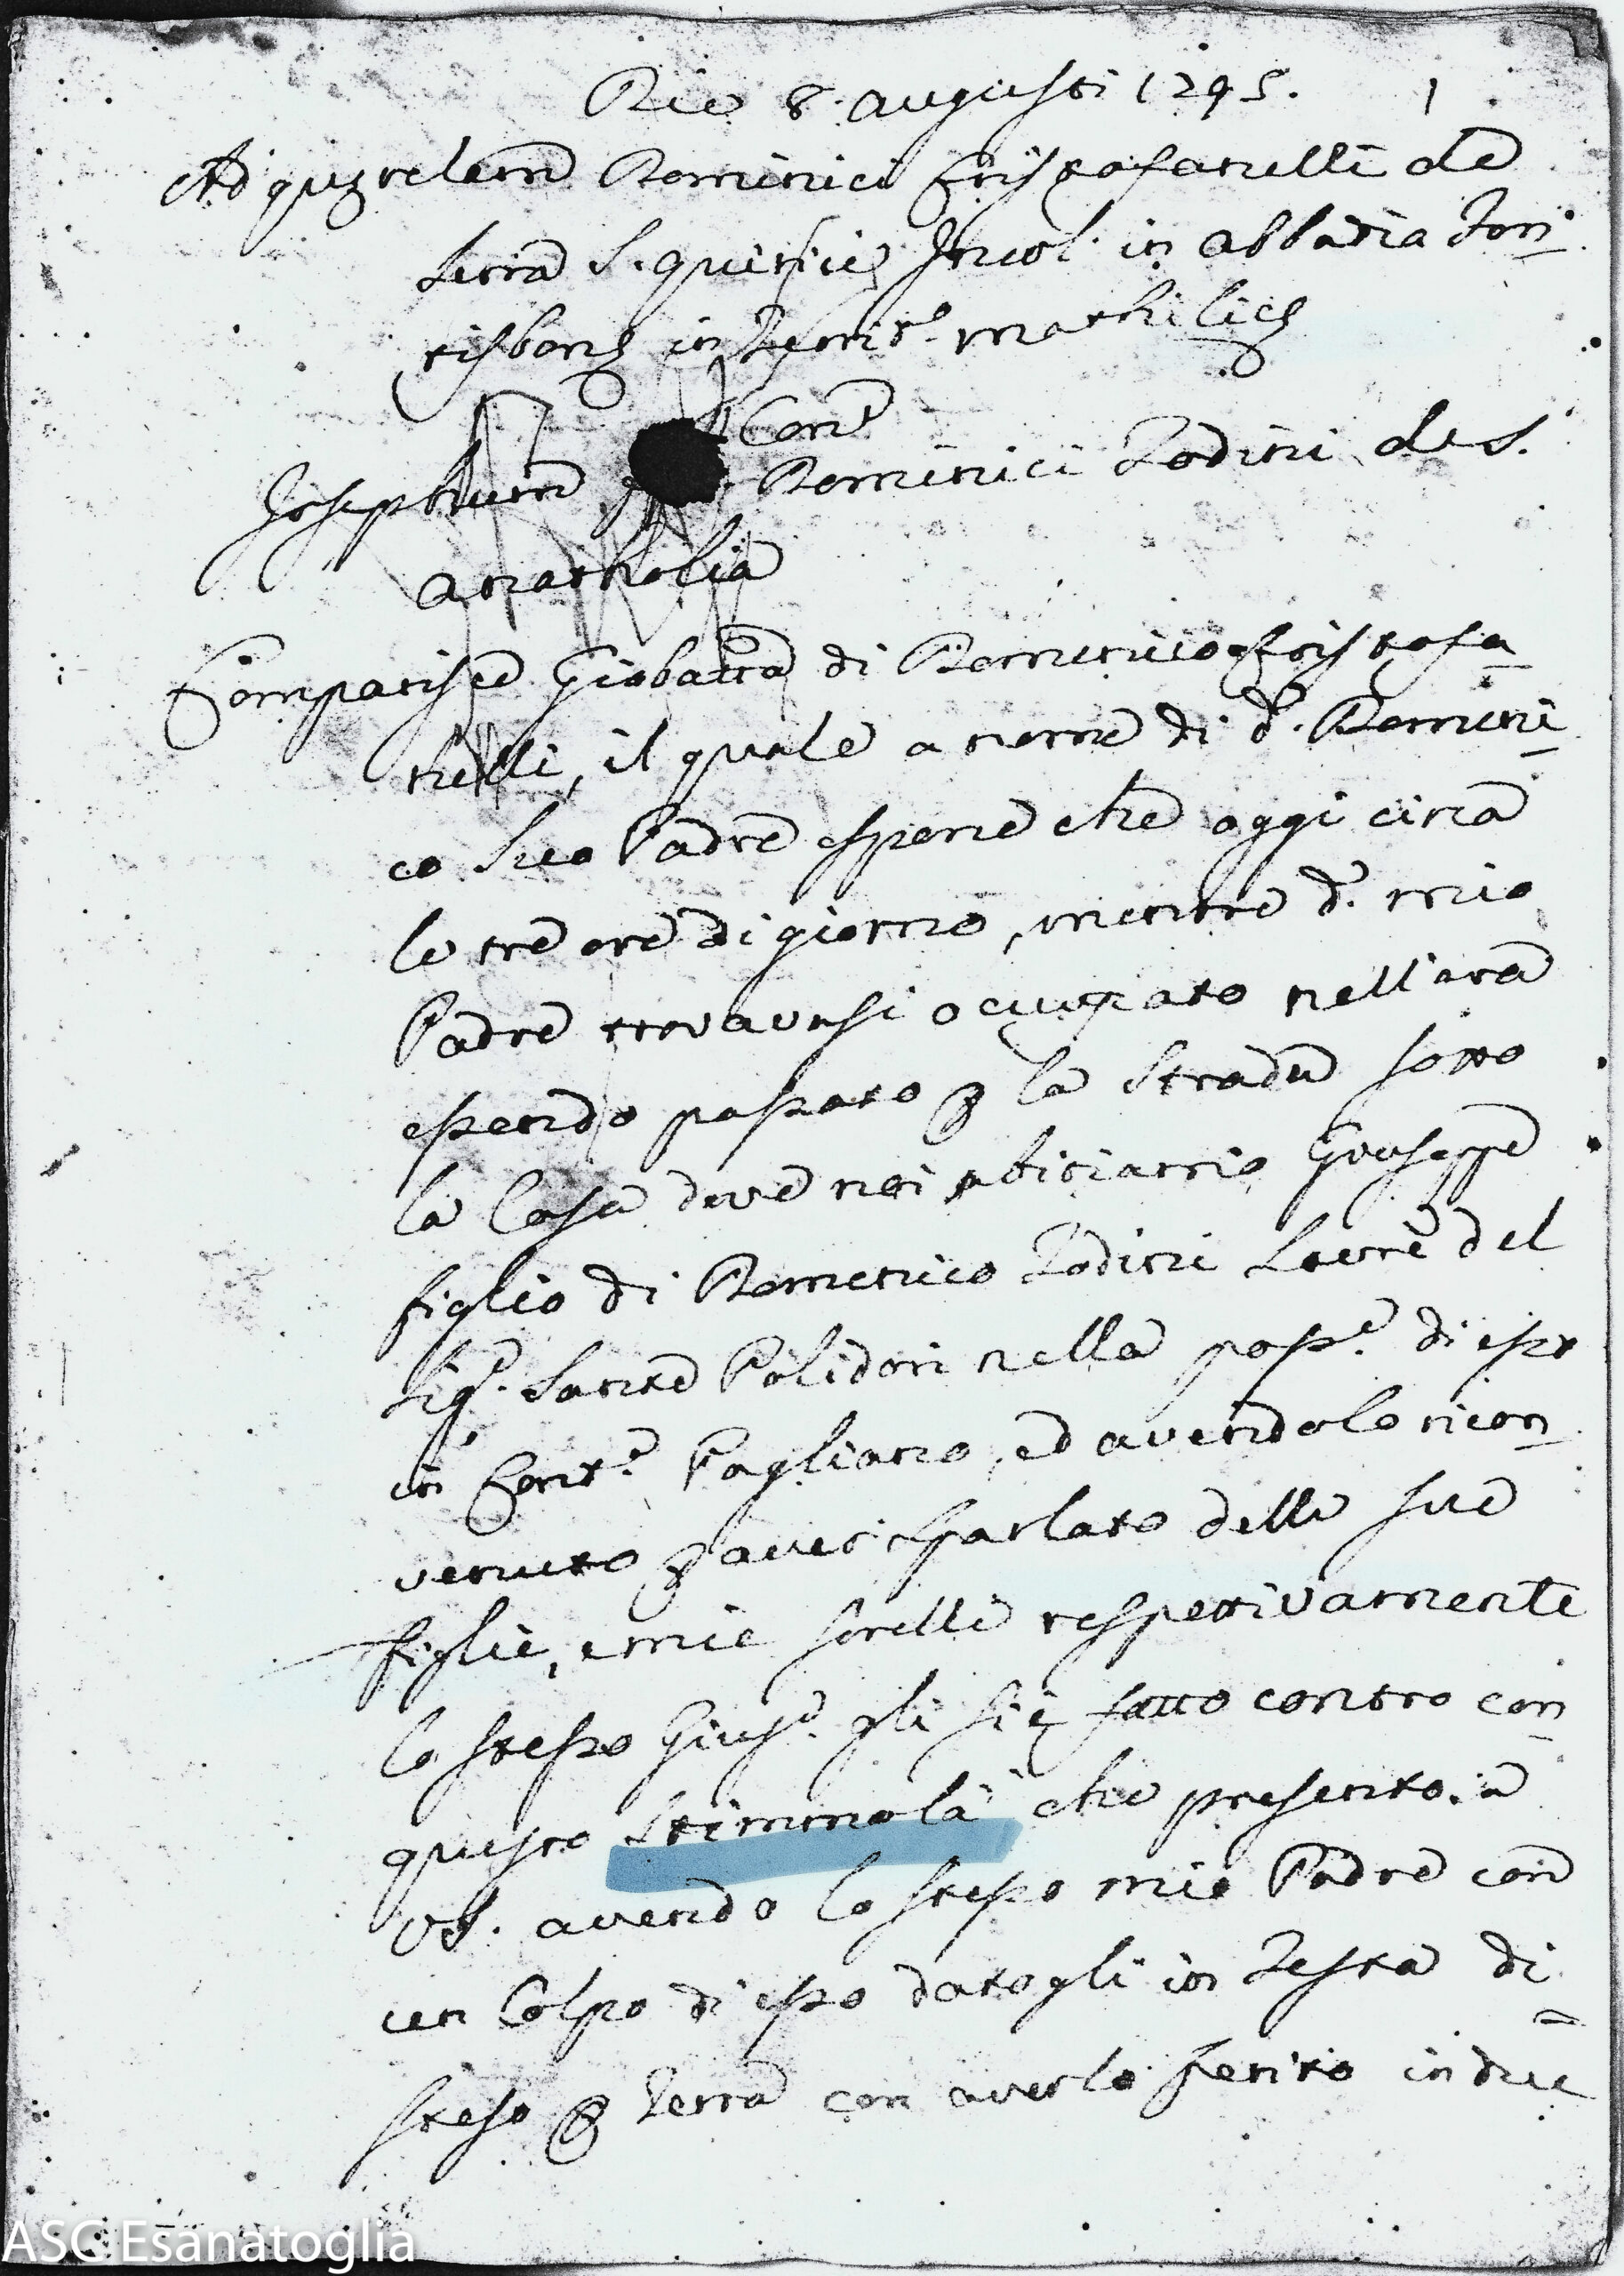 Die 8. Augusti 1795. 1
Ad querelam Dominici Cristofanelli de
Terra S. Quirici Incol. in Abbatia Ror
tisbonę in Territ.o Mathilicę
Con.
Josephum Dominici Zodini de S.
Anatholia
Comparisce Giobatta di Domenico Cristofa
nelli, il quale a nome di d.o Domeni
co suo Padre espone che oggi circa
le tre ore di giorno, mentre d.o mio
Padre trovavasi occupato nell'ara
essendo passato p la strada sotto
la Casa dove noi abitiamo Giuseppe
figlio di Domenico Zodini Lavre del
Sig.r Sante Polidori nella poss.e di esso
in Cont.a Pagliano, ed avendolo ricon
venuto p aver sparlato delle sue
figlie, e mie sorelle respettivamente
lo stesso Gius.e gli si è fatto contro con
questo Stimmolà che presento a
VS. avendo lo stesso mio Padre con
un Colpo di esso datogli in Testa di
steso p Terra con averlo ferito in due
ASC Esanatoglia